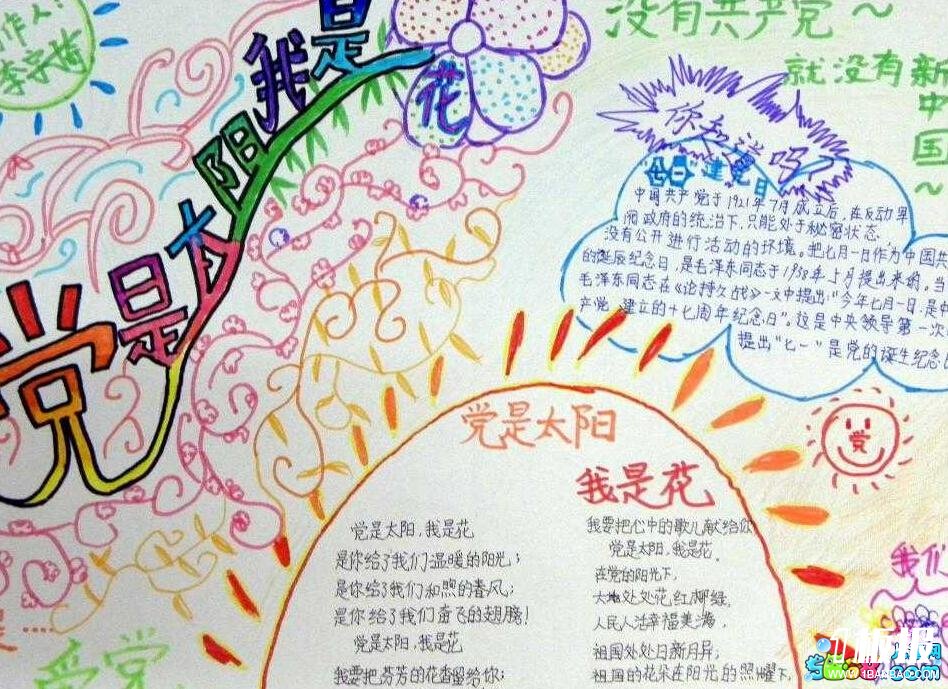 作人：
李宇琦
党是太阳我是花
没有共产党～
就没有新
中
国
～
你知道吗？
"七一"建党日
中国共产党于1921年7月成立后，在反动军
阀政府的统治下，只能处于秘密状态
没有公开进行活动的环境。把七月一日作为中国共
的诞辰纪念日，是毛泽东同志于1938年5月提出来的。当
毛泽东同志在《论持久战》一文中提出："今年七月一日，是
产党 建立的十七周年纪念日"。这是中央领导第一次
提出"七一"是党的诞生纪念
党
党是太阳
我是花
党是太阳，我是花
是你给了我们温暖的阳光；
是你给了我们和煦的春风；
是你给了我们奋飞的翅膀！
党是太阳，我是花
我要把芬芳的花香留给你；
我要把心中的歌儿献给你
党是太阳，我是花。
在党的阳光下，
大地处处花红柳绿，
人民生活幸福美满，
祖国处处日新月异；
祖国的花朵在阳光的照耀下，
我们
爱党